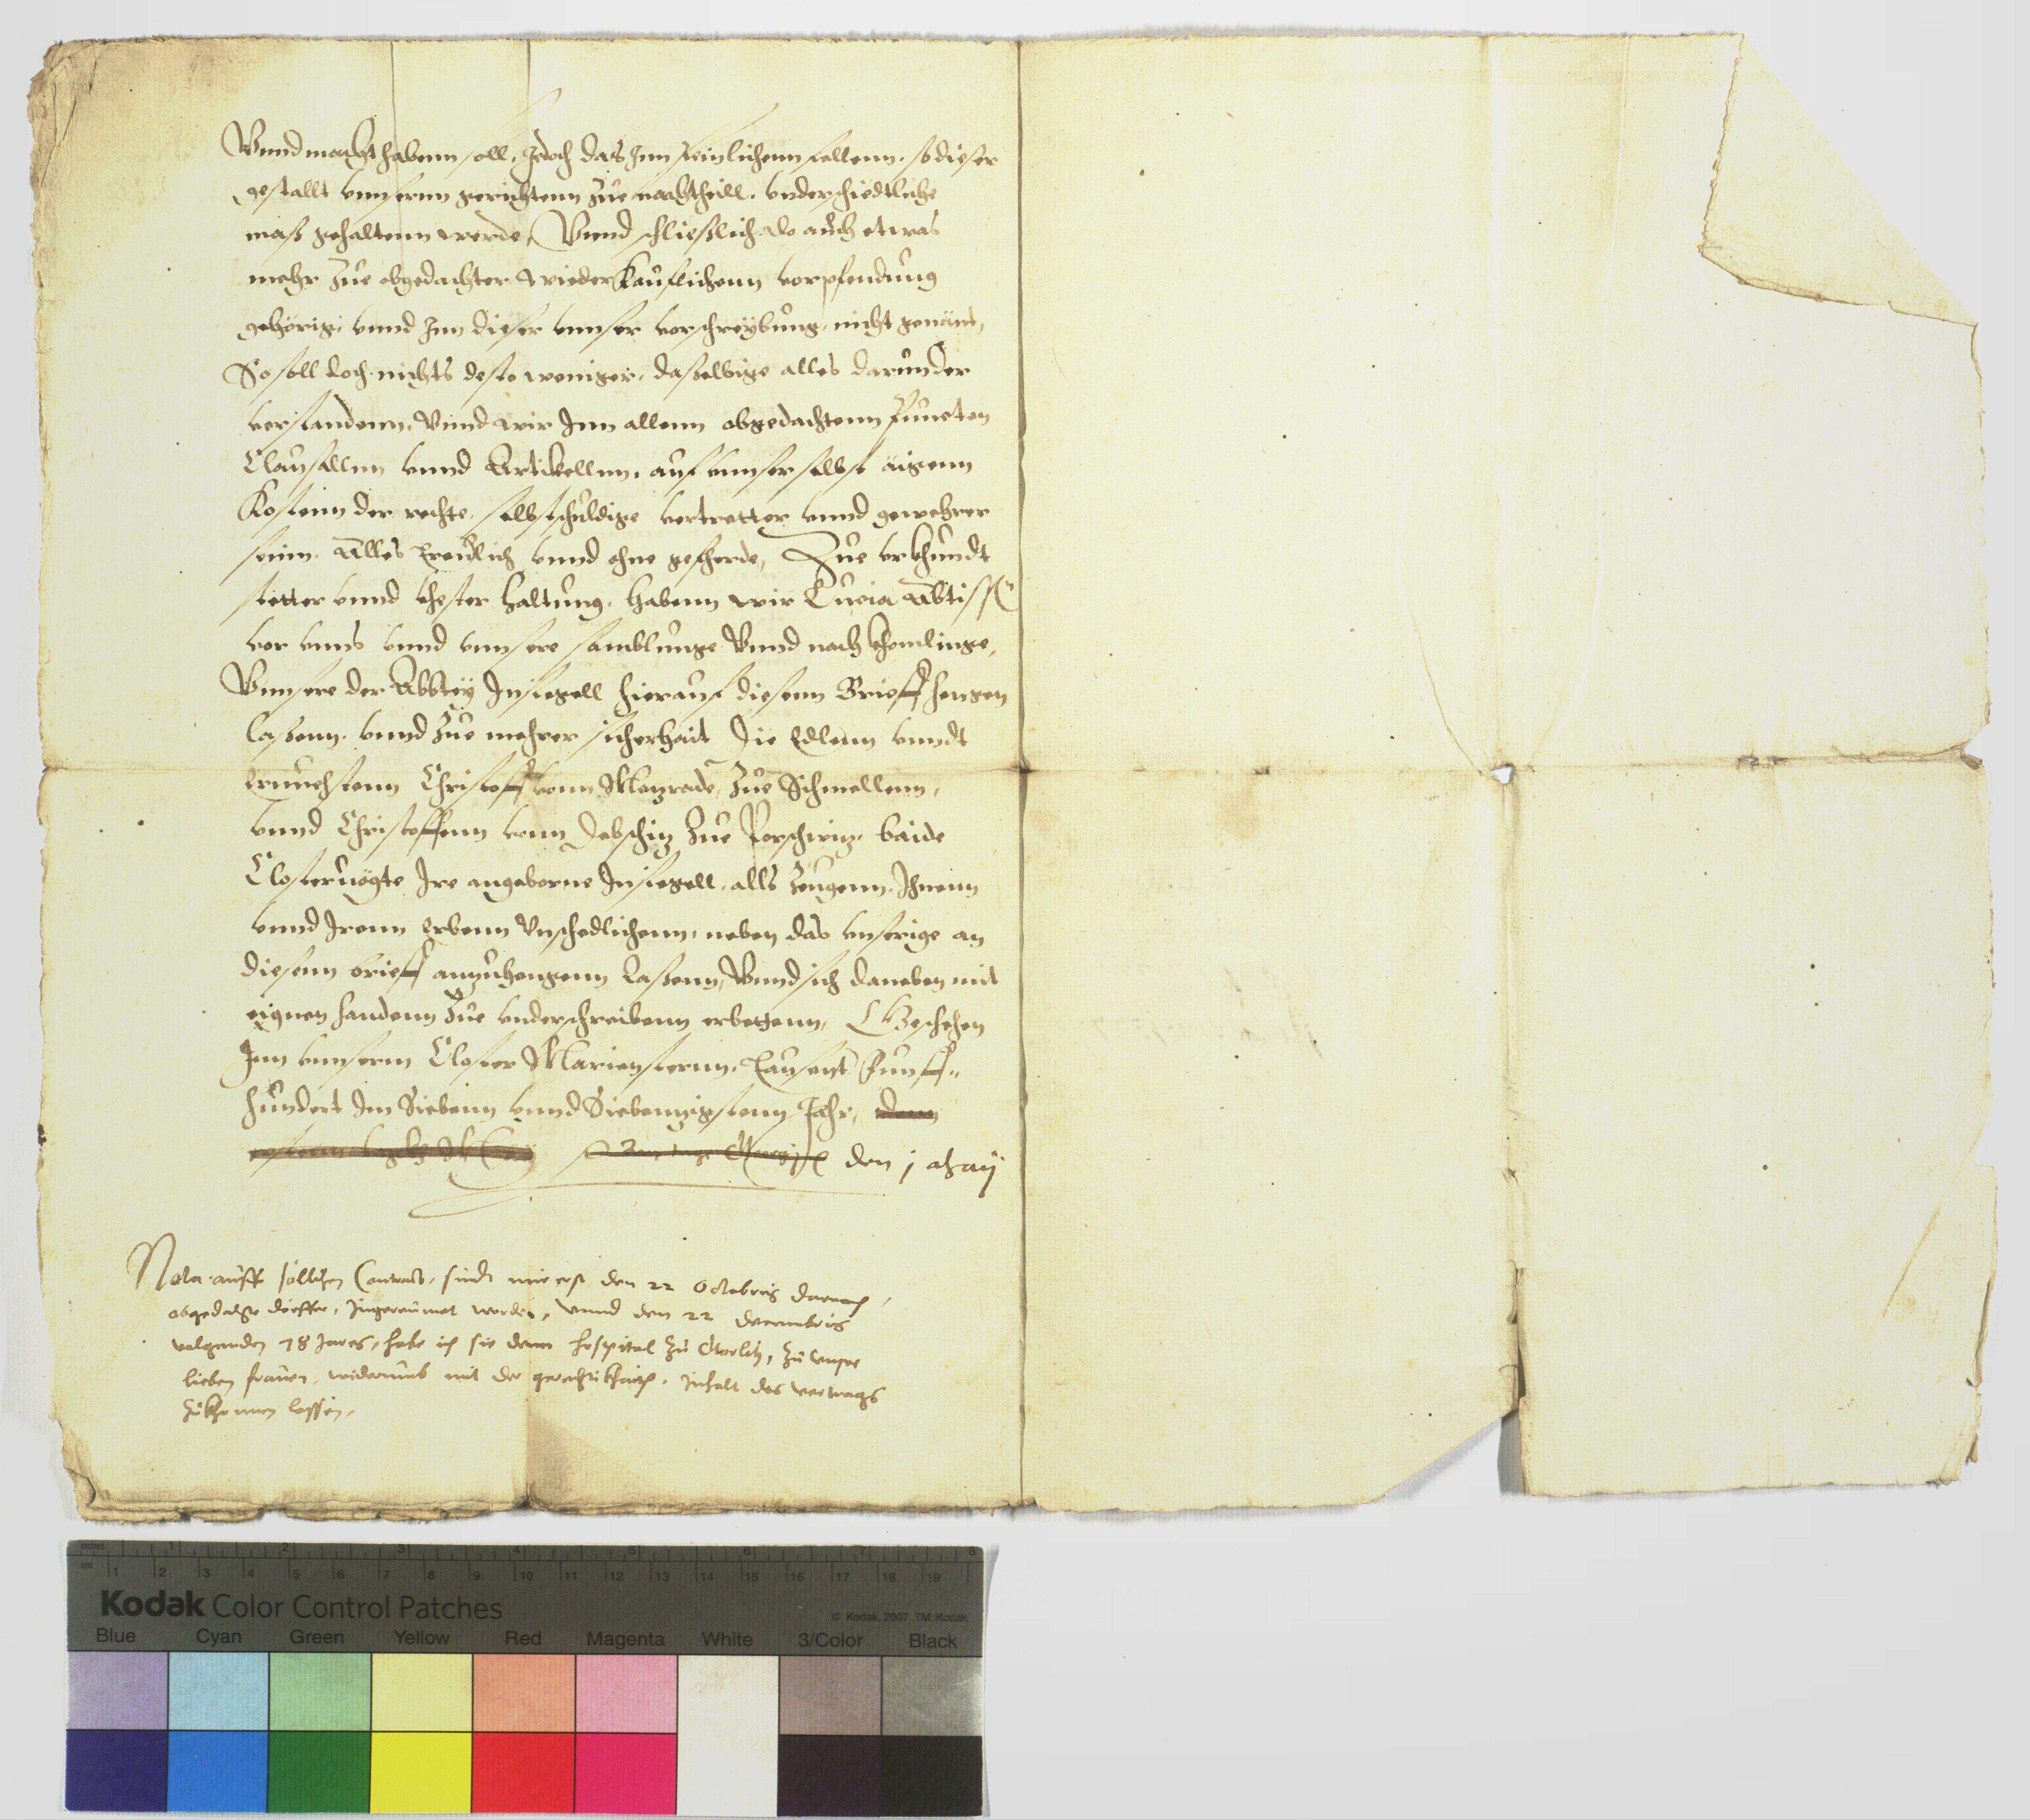 Vnnd macht habenn soll, Jdoch das Inn peinlichenn fellenn, so dieser
gestallt vnnsernn gerichtenn Zue nachtheill, vnderschiedtliche
mass gehaltenn werde, Vnnd schließlich do auch etwas
mehr Zue obgedachter wiederkauflichenn vorpfendung
gehörig, vnnd Inn dieser vnnser vorschreybung, nicht genänt,
So soll doch nichts desto weniger, daßelbige alles darunder
verstandenn, Vnnd wir Inn allenn obgedachtenn Puncten
Clausellnn vnnd Artikellnn, auf vnnser selbst aigenn
Kostenn der rechte, selbstschuldige vertretter vnnd gewehrer
seinn, Alles treulich vnnd ohne geferde, Zue vrkhundt
stetter vnnd vhester haltung, habenn wir Lucia Abtiss
vor vnns vnnd vnnsere samblunge Vnnd nachkhomlinge,
Vnnsere der Abbtey Insiegell hierauf diesenn Brieff hengen
laßenn, vnnd Zue mehrer sicherhait Die Edlenn vnndt
Ernuehstenn Christoff vonn Metzrade, Zue Schmellenn,
vnnd Christoffenn vonn Debschitz Zue baide
Clostervögte Ire angeborne Insiegell, alls Zeugenn, Ihnenn
vnnd Irenn Erbenn Vnschedlichenn, neben das vnserige an
diesenn brieff anzuhengenn laßenn, Vnnd sich daneben mit
eignen handenn Zue vnderschreibenn erbettenn, Geschehen
Inn vnnserm Closter Mariensternn, Tausent Funff„
hundert Im Siebenn vnnd Siebennzigstenn Jahr, denn
den 1 May
Nota auff sollchen Contract, sindt mir erst den 22 Octobris darnach,
obgedachte dörffer, Ingereumet worden, vnnd den 22 Decembris
volgenden 78 Jares, habe ich sie dem hospital Zu Gorlitz, Zu vnser
lieben frauen, widerumb mit der gerechtikhait, Inhalt des vertrags
Zukhommen lassen,
Kodak Color Control Patches
© Kodak, 2007 TM: Kodak
Blue Cyan Green Yellow Red Magenta White 3/Color Black
inches 1 2 3 4 5 6 7 8
cm 1 2 3 4 5 6 7 8 9 10 11 12 13 14 15 16 17 18 19